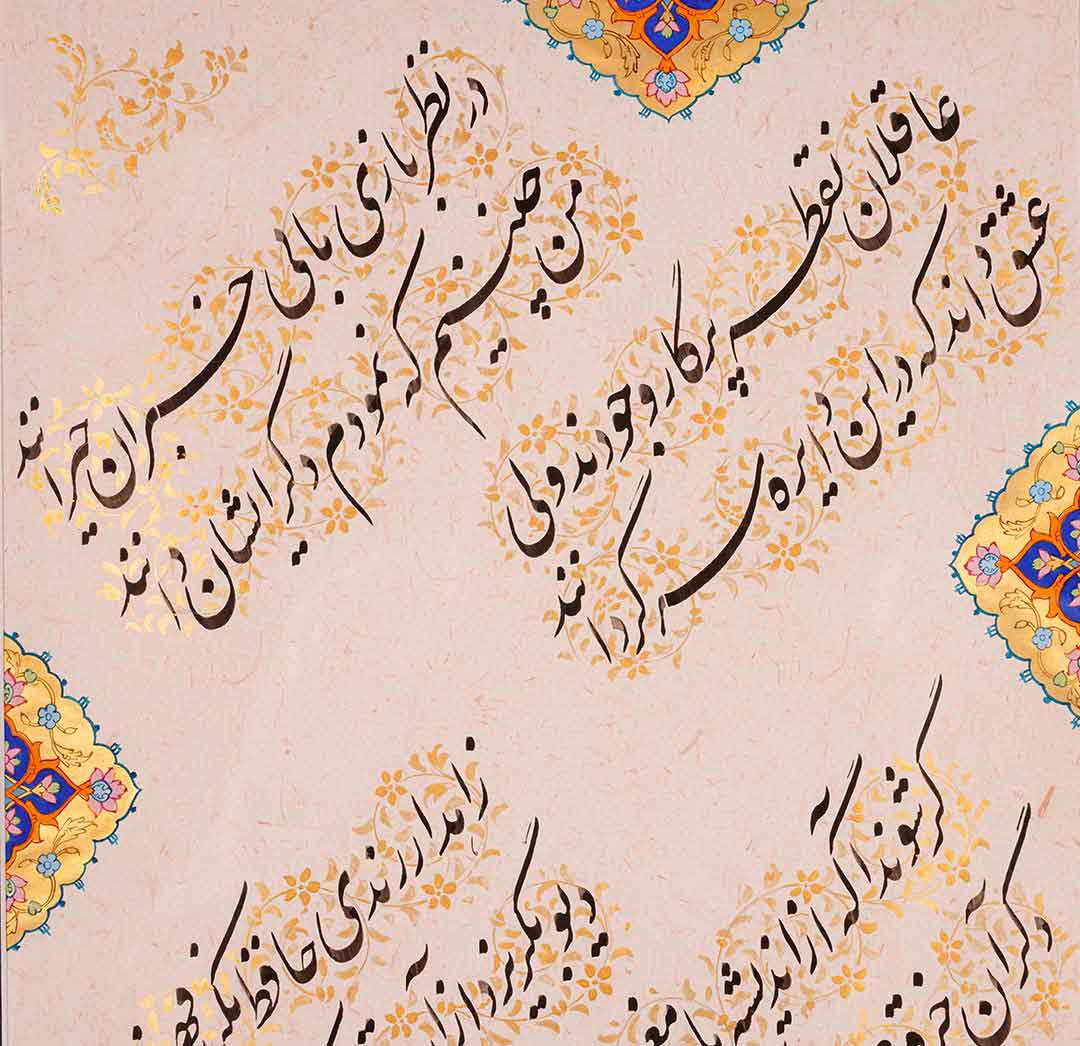 عاقلان نقطه پرگار وجودند ولی
عشق داند که در این دایره سرگردانند
در نظر بازی ما بی خبران حیرانند
من چنینم که نمودم دگر ایشان دانند
گر شوند آگه از اندیشه ما
دگر آن
زاهد ار رندی حافظ نکند
دیو بگریزد از آن